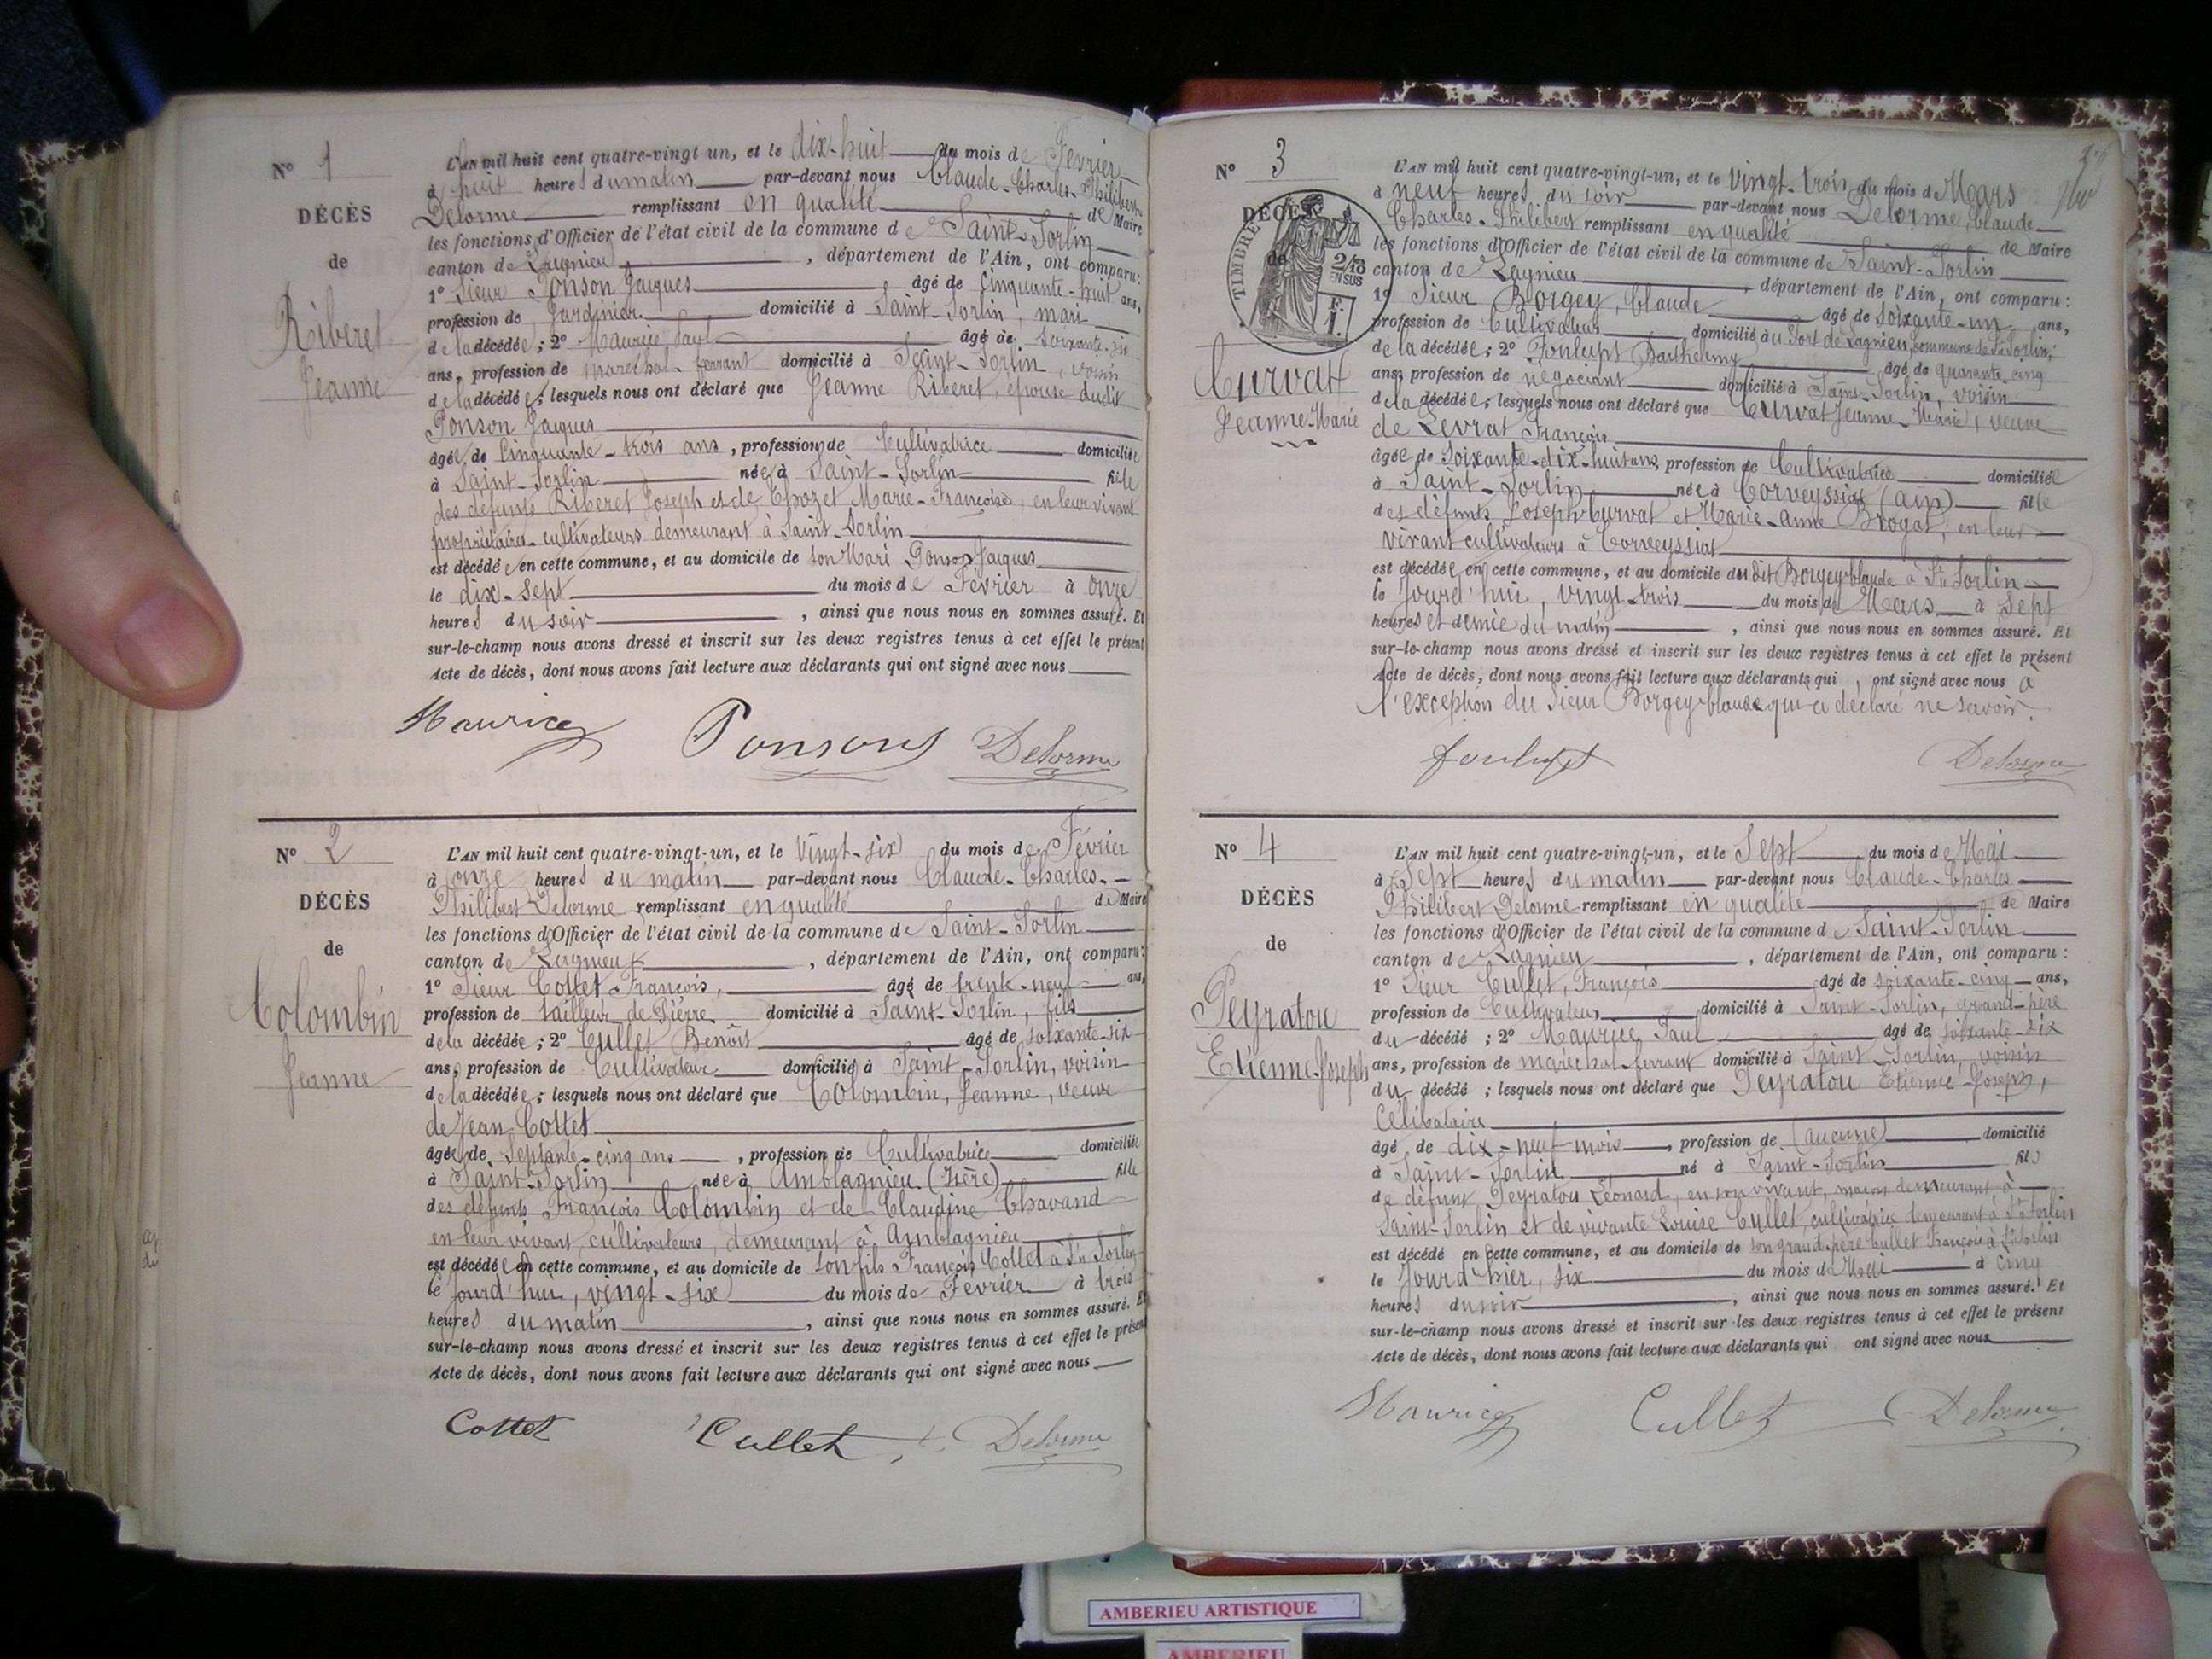 N° 1
DÉCÈS
de
Riberet
Jeanne
L'AN mil huit cent quatre-vingt un, et le dix-huit du mois de Février
à huit heures du matin par-devant nous Claude-Charles-Philibert
Delorme remplissant en qualité de Maire
les fonctions d'Officier de l'état civil de la commune de Saint-Sorlin
canton de Lagnieu, département de l'Ain, ont comparu:
1° Sieur Ponson Jacques âgé de cinquante-huit ans,
profession de Jardinier domicilié à Saint-Sorlin, mari
de la décédée; 2° Maurice Paul âgé de soixante-six
ans, profession de maréchal-ferrant domicilié à Saint-Sorlin, voisin
de la décédée; lesquels nous ont déclaré que Jeanne Riberet, épouse dudit
Ponson Jacques
âgée de Cinquante-trois ans, profession de Cultivatrice domiciliée
à Saint-Sorlin née à Saint-Sorlin fille
des défunts Riberet Joseph et de Chozet Marie-Françoise, en leur vivant
propriétaires-cultivateurs demeurant à Saint-Sorlin
est décédée en cette commune, et au domicile de son Mari Ponson Jacques
le dix-sept du mois de Février à onze
heures du soir, ainsi que nous nous en sommes assuré. Et
sur-le-champ nous avons dressé et inscrit sur les deux registres tenus à cet effet le présent
Acte de décès, dont nous avons fait lecture aux déclarants qui ont signé avec nous
Maurice Ponsons Delorme
N° 2
DÉCÈS
de
Colombin
Jeanne
L'AN mil huit cent quatre-vingt-un, et le Vingt-six du mois de Février
à onze heures du matin par-devant nous Claude-Charles-
Philibert Delorme remplissant en qualité de Maire
les fonctions d'Officier de l'état civil de la commune de Saint-Sorlin
canton de Lagnieu, département de l'Ain, ont comparu:
1° Sieur Cottet François, âgé de trente-neuf ans,
profession de tailleur de Pierre domicilié à Saint-Sorlin, fils
de la décédée; 2° Cullet Benoît âgé de soixante-six
ans, profession de Cultivateur domicilié à Saint-Sorlin, voisin
de la décédée; lesquels nous ont déclaré que Colombin, Jeanne, veuve
de Jean Cottet
âgée de Septante-cinq ans, profession de Cultivatrice domiciliée
à Saint-Sorlin née à Amblagnieu (Isère) fille
des défunts François Colombin et de Claudine Chavand
en leur vivant, cultivateurs, demeurant à Amblagnieu
est décédée en cette commune, et au domicile de son fils François Cottet à St Sorlin
le jourd'hui, vingt-six du mois de Février à trois
heures du matin, ainsi que nous nous en sommes assuré. Et
sur-le-champ nous avons dressé et inscrit sur les deux registres tenus à cet effet le présent
Acte de décès, dont nous avons fait lecture aux déclarants qui ont signé avec nous
Cottet Cullet Delorme
N° 3
DÉCÈS
de
TIMBRE
2/10
EN SUS
F.
1.
Curvat
Jeanne-Marie
L'AN mil huit cent quatre-vingt-un, et le vingt-trois du mois de Mars
à neuf heures du soir par-devant nous Delorme, Claude
Charles-Philibert remplissant en qualité de Maire
les fonctions d'Officier de l'état civil de la commune de Saint-Sorlin
canton de Lagnieu, département de l'Ain, ont comparu:
1° Sieur Borgey, Claude âgé de soixante-un ans,
profession de Cultivateur domicilié au Port de Lagnieu, commune de St Sorlin,
de la décédée; 2° Foulupt Barthélemy âgé de quarante-cinq
ans, profession de négociant domicilié à Saint-Sorlin, voisin
de la décédée; lesquels nous ont déclaré que Curvat Jeanne-Marie, veuve
de Levrat François
âgée de Soixante-dix-huit ans, profession de Cultivatrice domiciliée
à Saint-Sorlin née à Corveyssiat (Ain) fille
des défunts Joseph Curvat et Marie-Anne Brogat, en leur
vivant cultivateurs à Corveyssiat
est décédée en cette commune, et au domicile du dit Borgey Claude à St Sorlin
le jourd'hui, vingt-trois du mois de Mars à Sept
heures et demie du matin, ainsi que nous nous en sommes assuré. Et
sur-le-champ nous avons dressé et inscrit sur les deux registres tenus à cet effet le présent
Acte de décès, dont nous avons fait lecture aux déclarants qui ont signé avec nous à
l'exception du Sieur Borgey Claude qui a déclaré ne savoir.
foulupt Delorme
N° 4
DÉCÈS
de
Peyratou
Etienne-Joseph
L'AN mil huit cent quatre-vingt-un, et le Sept du mois de Mai
à Sept heures du matin par-devant nous Claude-Charles
Philibert Delorme remplissant en qualité de Maire
les fonctions d'Officier de l'état civil de la commune de Saint-Sorlin
canton de Lagnieu, département de l'Ain, ont comparu:
1° Sieur Cullet, François âgé de soixante-cinq ans,
profession de Cultivateur domicilié à Saint-Sorlin, grand-père
du décédé; 2° Maurice Paul âgé de soixante-six
ans, profession de maréchal-ferrant domicilié à Saint-Sorlin, voisin
du décédé; lesquels nous ont déclaré que Peyratou Etienne-Joseph,
Célibataire
âgé de dix-neuf mois, profession de (aucune) domicilié
à Saint-Sorlin né à Saint-Sorlin fils
de défunt Peyratou Léonard, en son vivant, maçon demeurant à
Saint-Sorlin et de vivante Louise Cullet, cultivatrice demeurant à St Sorlin
est décédé en cette commune, et au domicile de son grand-père Cullet François à St Sorlin
le jourd'hier, six du mois de Mai à cinq
heures du soir, ainsi que nous nous en sommes assuré. Et
sur-le-champ nous avons dressé et inscrit sur les deux registres tenus à cet effet le présent
Acte de décès, dont nous avons fait lecture aux déclarants qui ont signé avec nous
Maurice Cullet Delorme
AMBERIEU ARTISTIQUE
AMBERIEU